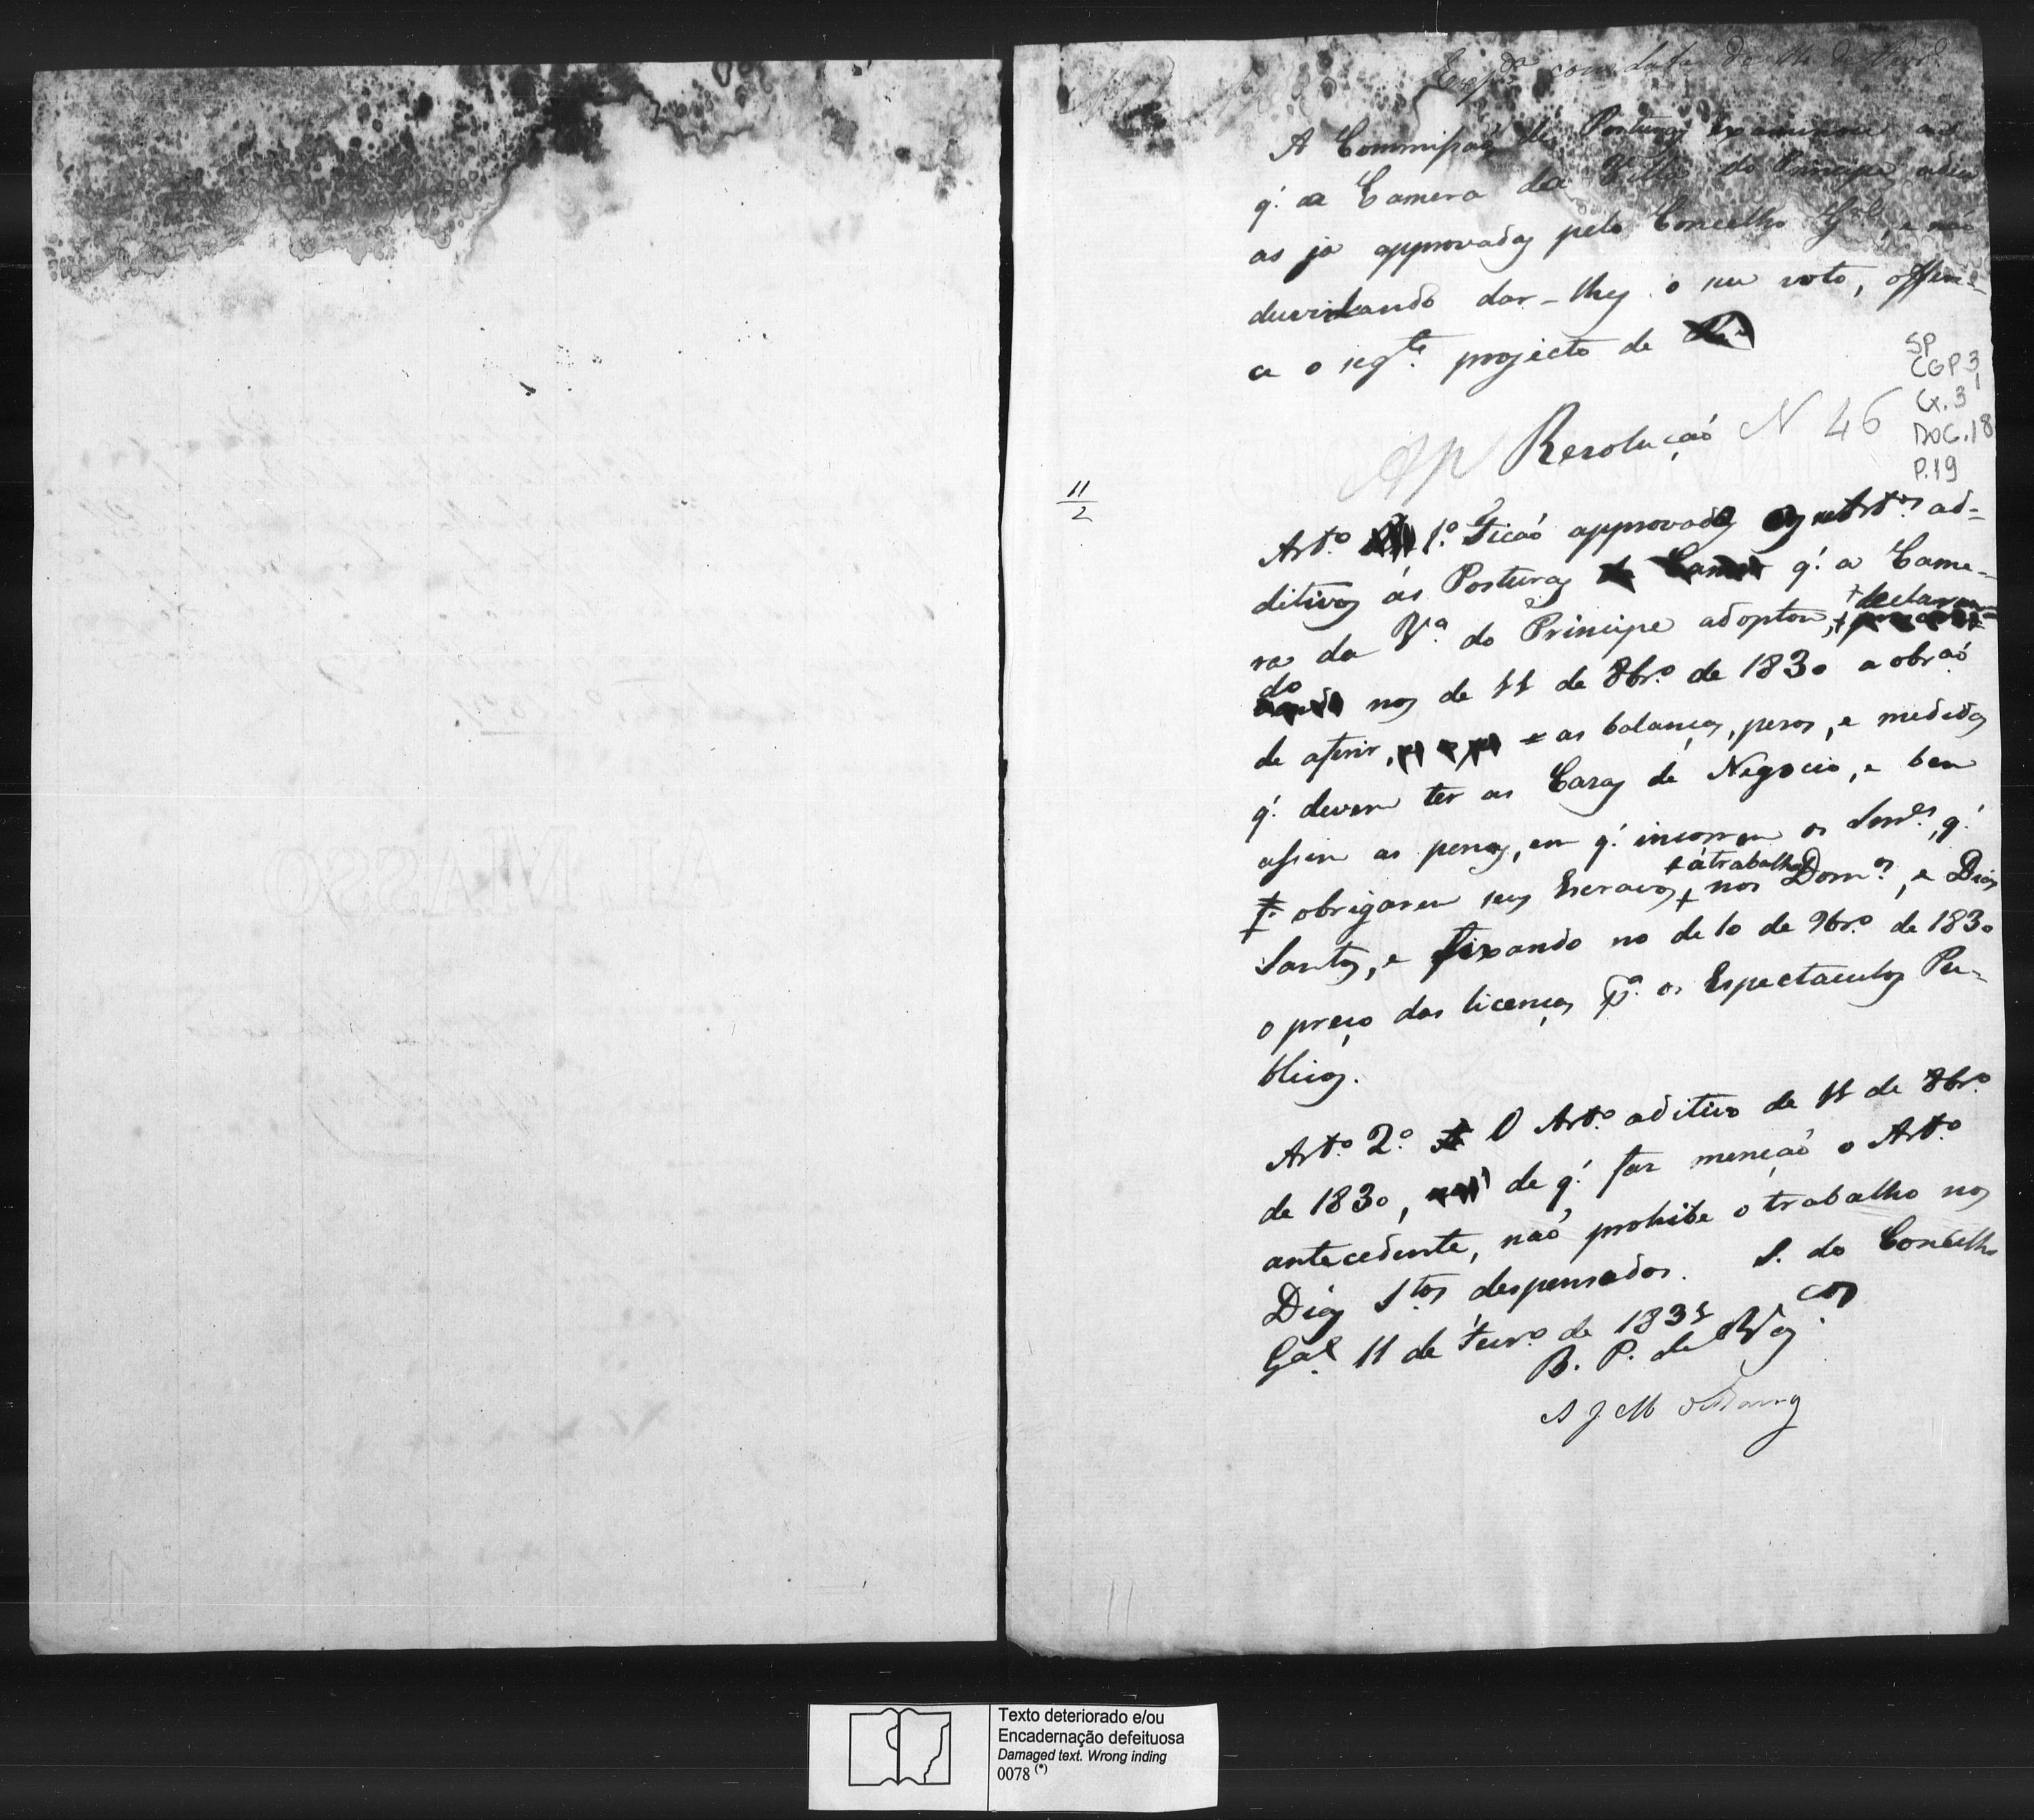 Exp.da com data de 11 de
A Commissaõ de Posturas examinou as
q̃. a Camera da Villa do Principe adiu
as ja approvadas pelo Concelho G.al, e naõ
duvidando dar-lhes o seu voto, offere-
ce o seg.te projecto de
SP
CGP 3
Cx. 3
DOC. 18
P. 19
Ap Resoluçaõ N 46
11
2
Art.o 1.o Ficaõ approvados os Art.os ad-
ditivos ás Posturas q̃. a Came-
ra da V.a do Principe adoptou, declaran-
do nos de 11 de 8br.o de 1830 a obr.aõ
de aferir, as balanças, pesos, e medidas
q̃. devem ter as Casas de Negocio, e bem
assim as penas, em q̃. incorrem os Senr.es, q̃.
obrigarem seus Escravos a trabalhar nos Dom.os, e Dias
Santos, e fixando no de 10 de 9br.o de 1830
o preço das licenças p.a os Espectaculos Pu-
blicos.
Art.o 2.o O Art.o aditivo de 11 de 8br.o
de 1830, de q̃. faz mençaõ o Art.o
antecedente, naõ prohibe o trabalho nos
Dias S.tos despensados. S. do Concelho
G.al 11 de Fevr.o de 1831
B. P. de Vas.cos
A J M
11
AL MASSO
Texto deteriorado e/ou
Encadernação defeituosa
Damaged text. Wrong inding
0078 (*)